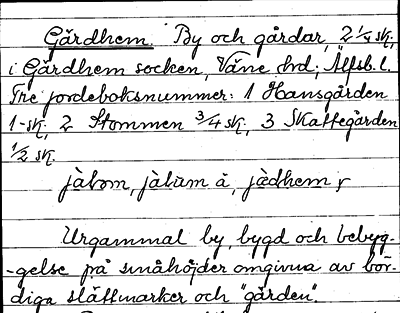 Gärdhem. By och gårdar, 2 1/4 sk;
i Gärdhem socken, Väne hrd; Älfsb. l.
Tre jordeboksnummer: 1 Hansgården
1-sk; 2 Stommen 3/4 sk, 3 Skattegården
1/2 sk.
Urgammal by, bygd och bebyg-
-gelse på småhöjder omgivna av bör-
diga slättmarker och "gärden".